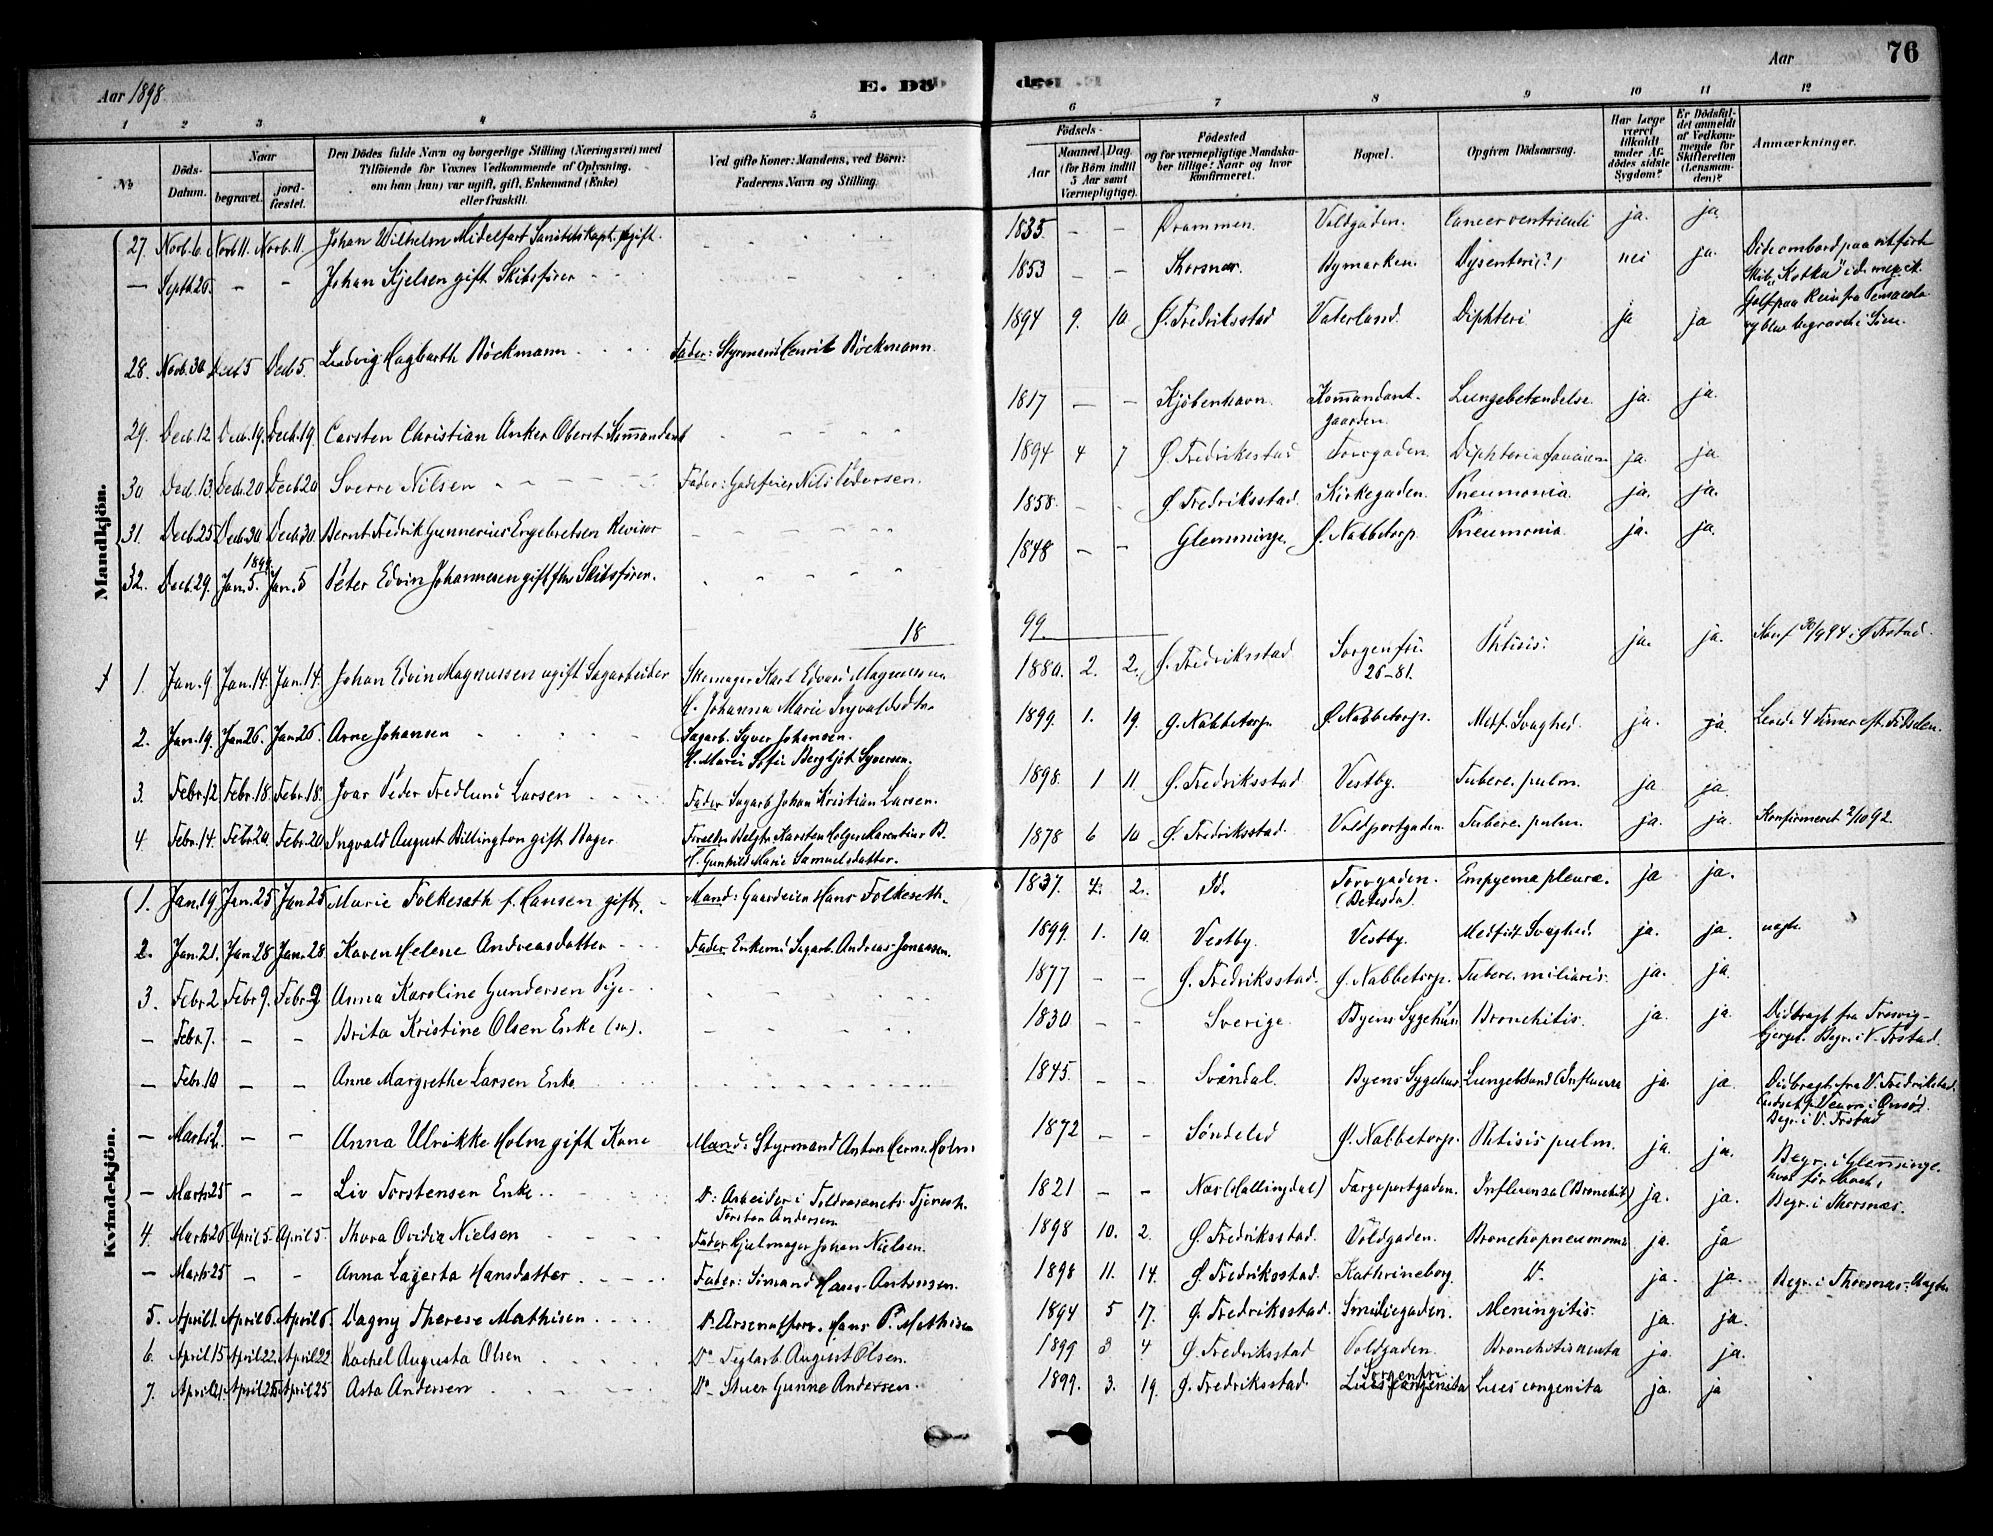 Aar 1898
E. Dö
døde.
Aar
76
1 2 3 4 5 6 7 8 9 10 11 12
No
Döds-Datum.
Naar
begravet.
jord-fæstet.
Den Dödes fulde Navn og borgerlige Stilling (Næringsvei) med
Tilföiende for Voxnes Vedkommende af Oplysning,
om han (hun) var ugift, gift, Enkemand (Enke)
eller fraskilt.
Ved gifte Koner: Mandens, ved Börn:
Faderens Navn og Stilling.
Födsels-
Aar
Maaned. Dag.
(for Börn indtil
5 Aar samt
Værnepligtige).
Födested
og for værnepligtige Mandska-
ber tillige: Naar og hvor
konfirmeret.
Bopæl.
Opgiven Dödsaarsag.
Har Læge
været
tilkaldt
under Af-
dödes sidste
Sygdom?
Er Dödsfal-
det anmeldt
af Vedkom-
mende for
Skifteretten
(Lensman-
den)?
Anmærkninger.
Mandkjön.
27. Novb. 6. Novb 11. Novb. 11. Johan Wilhelm Midelfart Sanitetskapt. gift. 1835 – – Drammen. Voldgaden. Cancer ventriculi ja. ja
— Septb. 26. – – Johan Kjelsen gift Skibsfører 1853 – – Thorsnæs. Bymarken. Dysenteri (?) nei ja. Døde ombord paa
Skib "Kotka" i d. mexik.
Golf paa Reise fra Pensacola
og blev begravet i Søen.
28. Novb. 30 Decb 5 Decb 5. Ludvig Hagbarth Böckmann Fader: Styrmand Henrik Böckmann. 1894 9. 10. Ø. Fredriksstad Vaterland. Diphteri ja ja
29. Decb. 12. Decb. 19. Decb. 19. Carsten Christian Anker Oberst Kommandant 1817 — – Kjöbenhavn. Kommandant-
gaarden. Lungebetændelse. ja. ja.
30 Decb. 13. Decb 20 Decb 20 Sverre Nilsen Fader: Gadefeier Nils Pedersen. 1894 4 7 Ø. Fredriksstad Torvgaden. Diphteria faucium ja. ja.
31. Decb. 25 Decb. 30 Decb. 30 Bernt Fredrik Gunnerius Engebretsen Revisor 1858. – – Ø. Fredriksstad. Kirkegaden. Pneumonia. ja. ja.
1899
32. Decb. 29. Jan. 5. Jan. 5 Peter Edvin Johannesen gift fhv Skibsfören. 1848 – – Glemminge. Ø. Nabbetorp. Pneumonia. ja. ja.
18
99.
1. Jan. 9. Jan. 14. Jan. 14. Johan Edvin Magnussen ugift Sagarbeider Skomager Karl Edvard Magnussen 1880. 2. 2. Ø. Fredriksstad Sorgenfri. Phtisis. ja. ja. Konf 30/9 94 i Ø Frstad.
H. Johanna Marie Ingvaldsdtr. 26-81.
2. Jan. 19. Jan 26. Jan. 26. Arne Johansen Sagarb. Syver Johansen. 1899. 1. 19. Ø. Nabbetorp. Ø. Nabbetorp. Medf. Svaghed. ja. ja Levede 4 Timer eft. Födselen.
H. Marie Sofie Bergljot Syversen.
3. Febr. 12 Febr. 18 Febr. 18. Ivar Peder Fredlund Larsen Fader Sagarb Johan Kristian Larsen. 1898. 1 11. Ø. Fredriksstad Vestby. Tuberc. pulm. ja ja.
4 Febr. 14. Febr 20. Febr. 20 Ingvald August Billington gift Bager Karsten Holger B. 1878 6 10 Ø. Fredriksstad. Voldportgaden. Tuberc. pulm. ja. ja. Konfirmeret 2/10 92.
H. Gunhild Marie Samuelsdatter.
Kvindekjön.
1. Jan. 19 Jan. 25 Jan 25 Marie Folkesæth f. Hansen gift. Mand: Gaardeier Hans Folkeseth. 1837. 4. 2. D. Torvgaden. Empyema pleuræ. ja ja.
(Betesda).
2. Jan. 21. Jan. 28 Jan. 28. Karen Helene Andreasdatter Fader Enkemd Sagarb. Andreas Jonassen. 1899. 1. 10. Vestby. Vestby. Medfdt. Svaghed. ja. ja. uægte
3. Febr 2 Febr 9. Febr 9 Anna Karoline Gundersen Pige 1877 – – Ø. Fredriksstad. Ø. Nabbetorp. Tuberc. miliaris. ja. ja.
— Febr 7. – – Brita Kristine Olsen Enke (sv). 1830 – – Sverige. Byens Sygehus Bronchitis. ja. ja. Didbragt fra Trosvig-
bjerget. Begr. i V. Frstad.
— Febr. 10 – – Anne Margrethe Larsen Enke 1845. – – Svindal. Byens Sygehus Lungebtænd (Influenza ja. ja. Didbragt fra V. Fredrikstad.
Begr. i V. Frstad
— Marts 2. – – Anna Ulrikke Holm gift Kone Mand: Styrmand Anton Herm. Holm. 1872 – – Söndeled Ø. Nabbetorp. Phtisis pulm. ja. ja. Begr. i Glemminge
— Marts 25 – – Liv Torstensen Enke D: Arbeider i Toldvæsenets Tjeneste. 1821 – – Næs (Hallingdal) Færgeportgaden. Influenza (Bronchit) ja. ja. Begr. i Thorsnæs.
Torsten Andersen
4. Marts 26 April 5. April 5. Thora Ovidia Nielsen Fader Hjulmager Johan Nielsen. 1898 10. 2. Ø. Fredriksstad. Voldgaden. Bronchopneumonie ja. ja
— Marts 25 – – Anna Lagerta Hansdatter Fader: Sömand Hans Antonsen. 1898 11. 14. Ø. Fredriksstad. Kathrineborg. D. ja. ja. Begr. i Thorsnæs. Uægte
5. April 1. April 6. April 6. Dagny Therese Mathisen D. Hans P. Mathisen 1894 5 17. Ø. Fredriksstad. Smediegaden. Meningitis. ja. ja.
6. April 15 April 22. April 22 Rachel Augusta Olsen Do Teglarb. August Olsen. 1899 3 4 Ø. Fredriksstad Voldgaden. Bronchitis acuta ja. ja.
7. April 21. April 25 April 25 Asta Andersen Do Stuer Gunne Andersen. 1899. 3. 19. Ø. Fredriksstad. Sorgenfri Lues congenita ja. ja